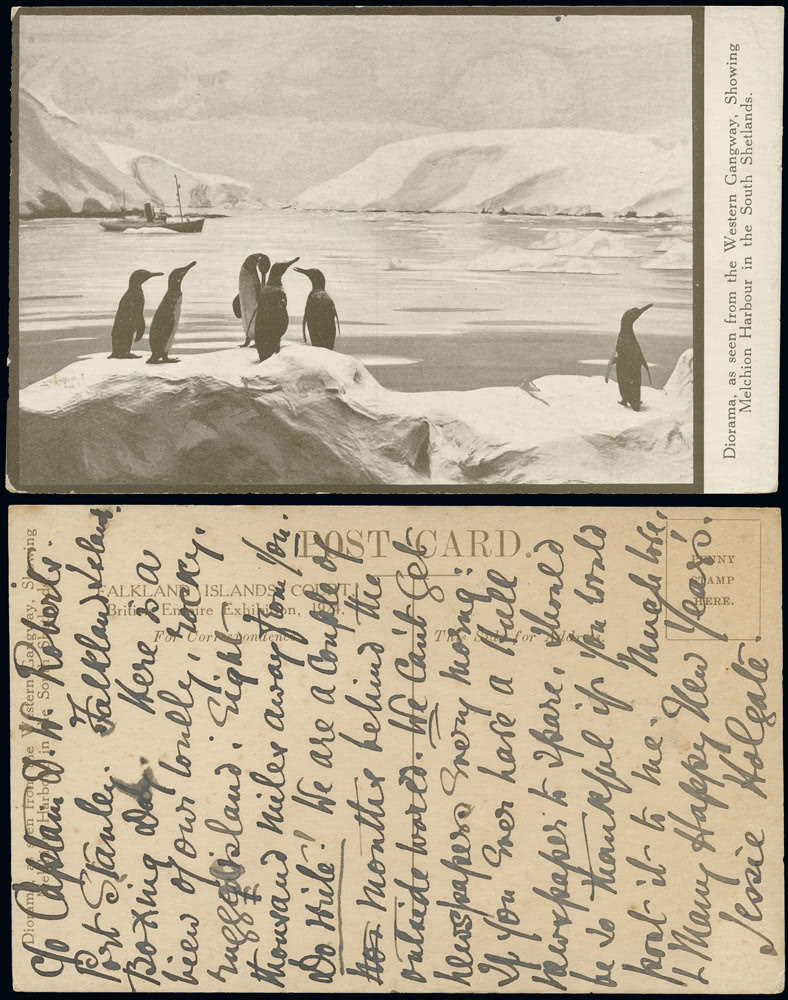 Diorama, as seen from the Western Gangway, Showing
Melchion Harbour in the South Shetlands.
POST CARD.
FALKLAND ISLANDS COURT,
British Empire Exhibition, 1924.
For Correspondence
This Side for Address.
PENNY
STAMP
HERE.
Diorama, as seen from the Western Gangway, Showing
Melchion Harbour in the South Shetlands.
C/o Captain D. W. Roberts.
Port Stanley. Falkland Islands.
Boxing Day. Here is a
view of our lonely, rocky,
rugged island. Eight
thousand miles away from you.
Do write! We are a couple of
months behind the
outside world. We can't get
newspapers every morning.
If you ever have a Hull
newspaper to spare, I should
be so thankful if you would
post it to me. Much love,
& Many Happy New Years.
Jessie Holgate.